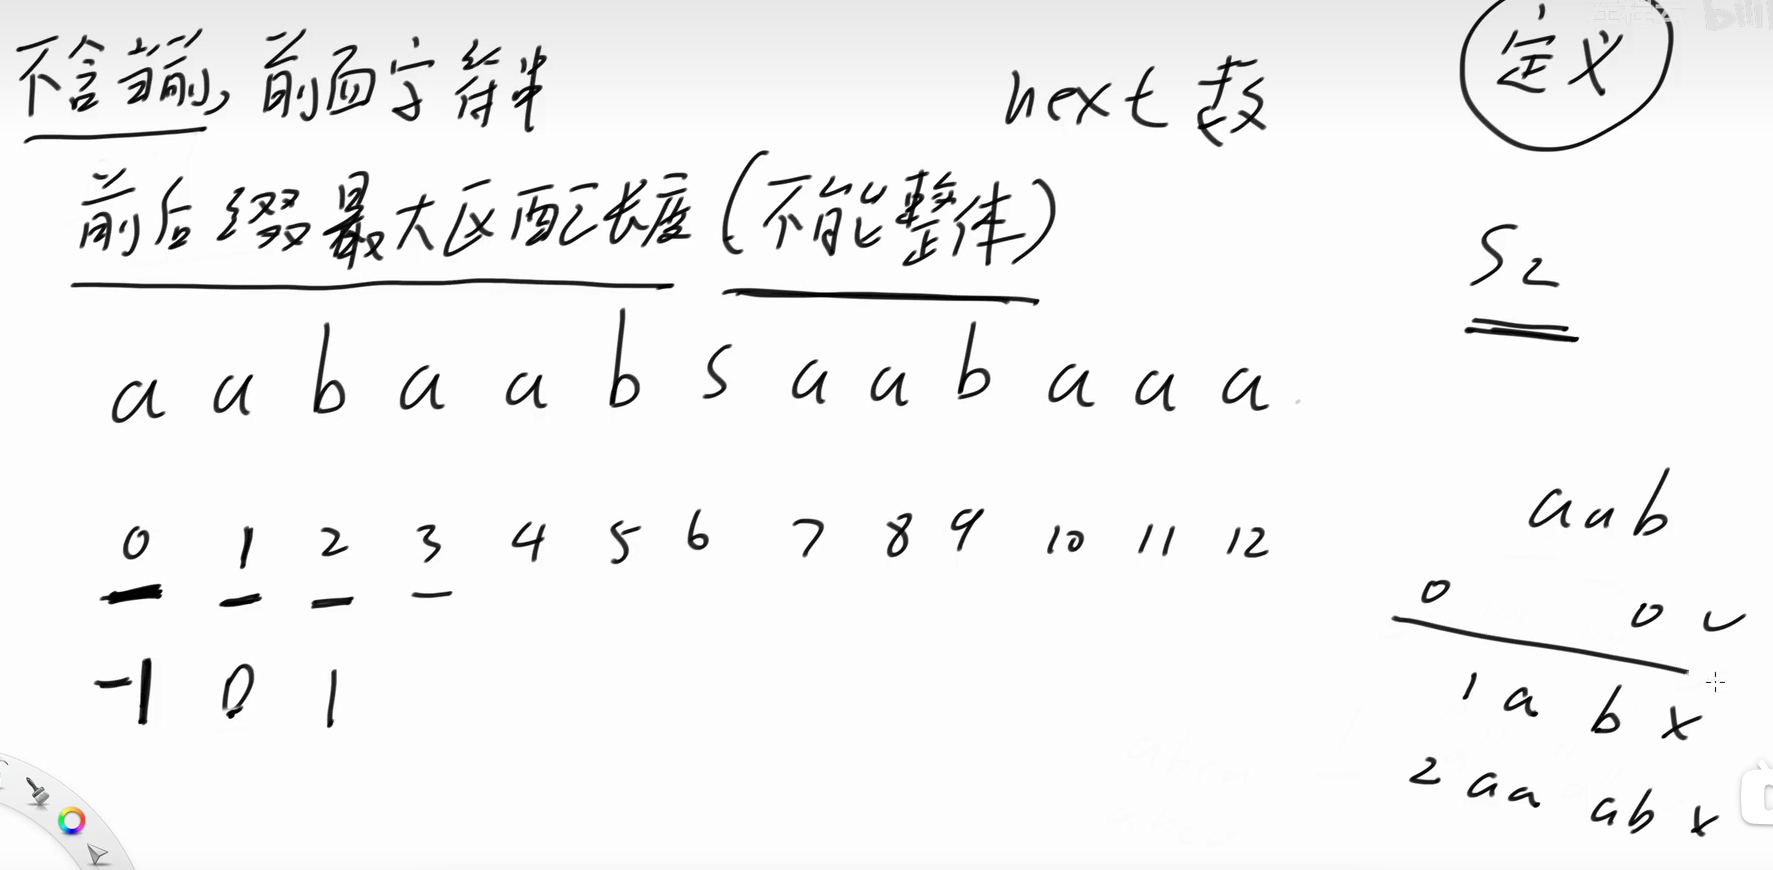 不含当前,前面字符串
next 数
定义
前后缀最大匹配长度(不能整体)
S2
a a b a a b s a a b a a a
0 1 2 3 4 5 6 7 8 9 10 11 12
-1 0 1
aab
0 0 ✓
1 a b x
2 aa ab x